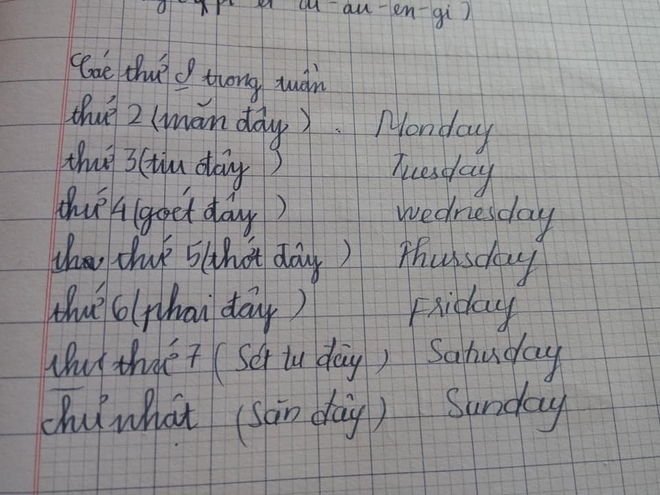 au-en-gi)
Các thứ trong tuần
thứ 2 (măn đây). Monday
thứ 3 (tiu đây) Tuesday
thứ 4 (goét đây) wednesday
thứ 5 (thót đây) Thursday
thứ 6 (phai đây) Friday
thứ 7 (Sét tu đây) Saturday
chủ nhật (săn đây) Sunday